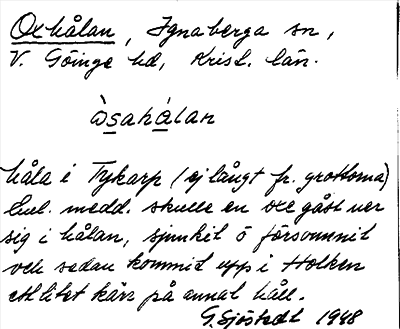 Oxhålan, Ignaberga sn,
V. Göinge hd, Krist. län.
òsahálan
håla i Tykarp (ej långt fr. grottorna)
Enl. medd. skulle en oxe gått ner
sig i hålan, sjunkit o försvunnit
och sedan kommit upp i Holken
ett litet kärr på annat håll.
G. Sjöstedt 1948